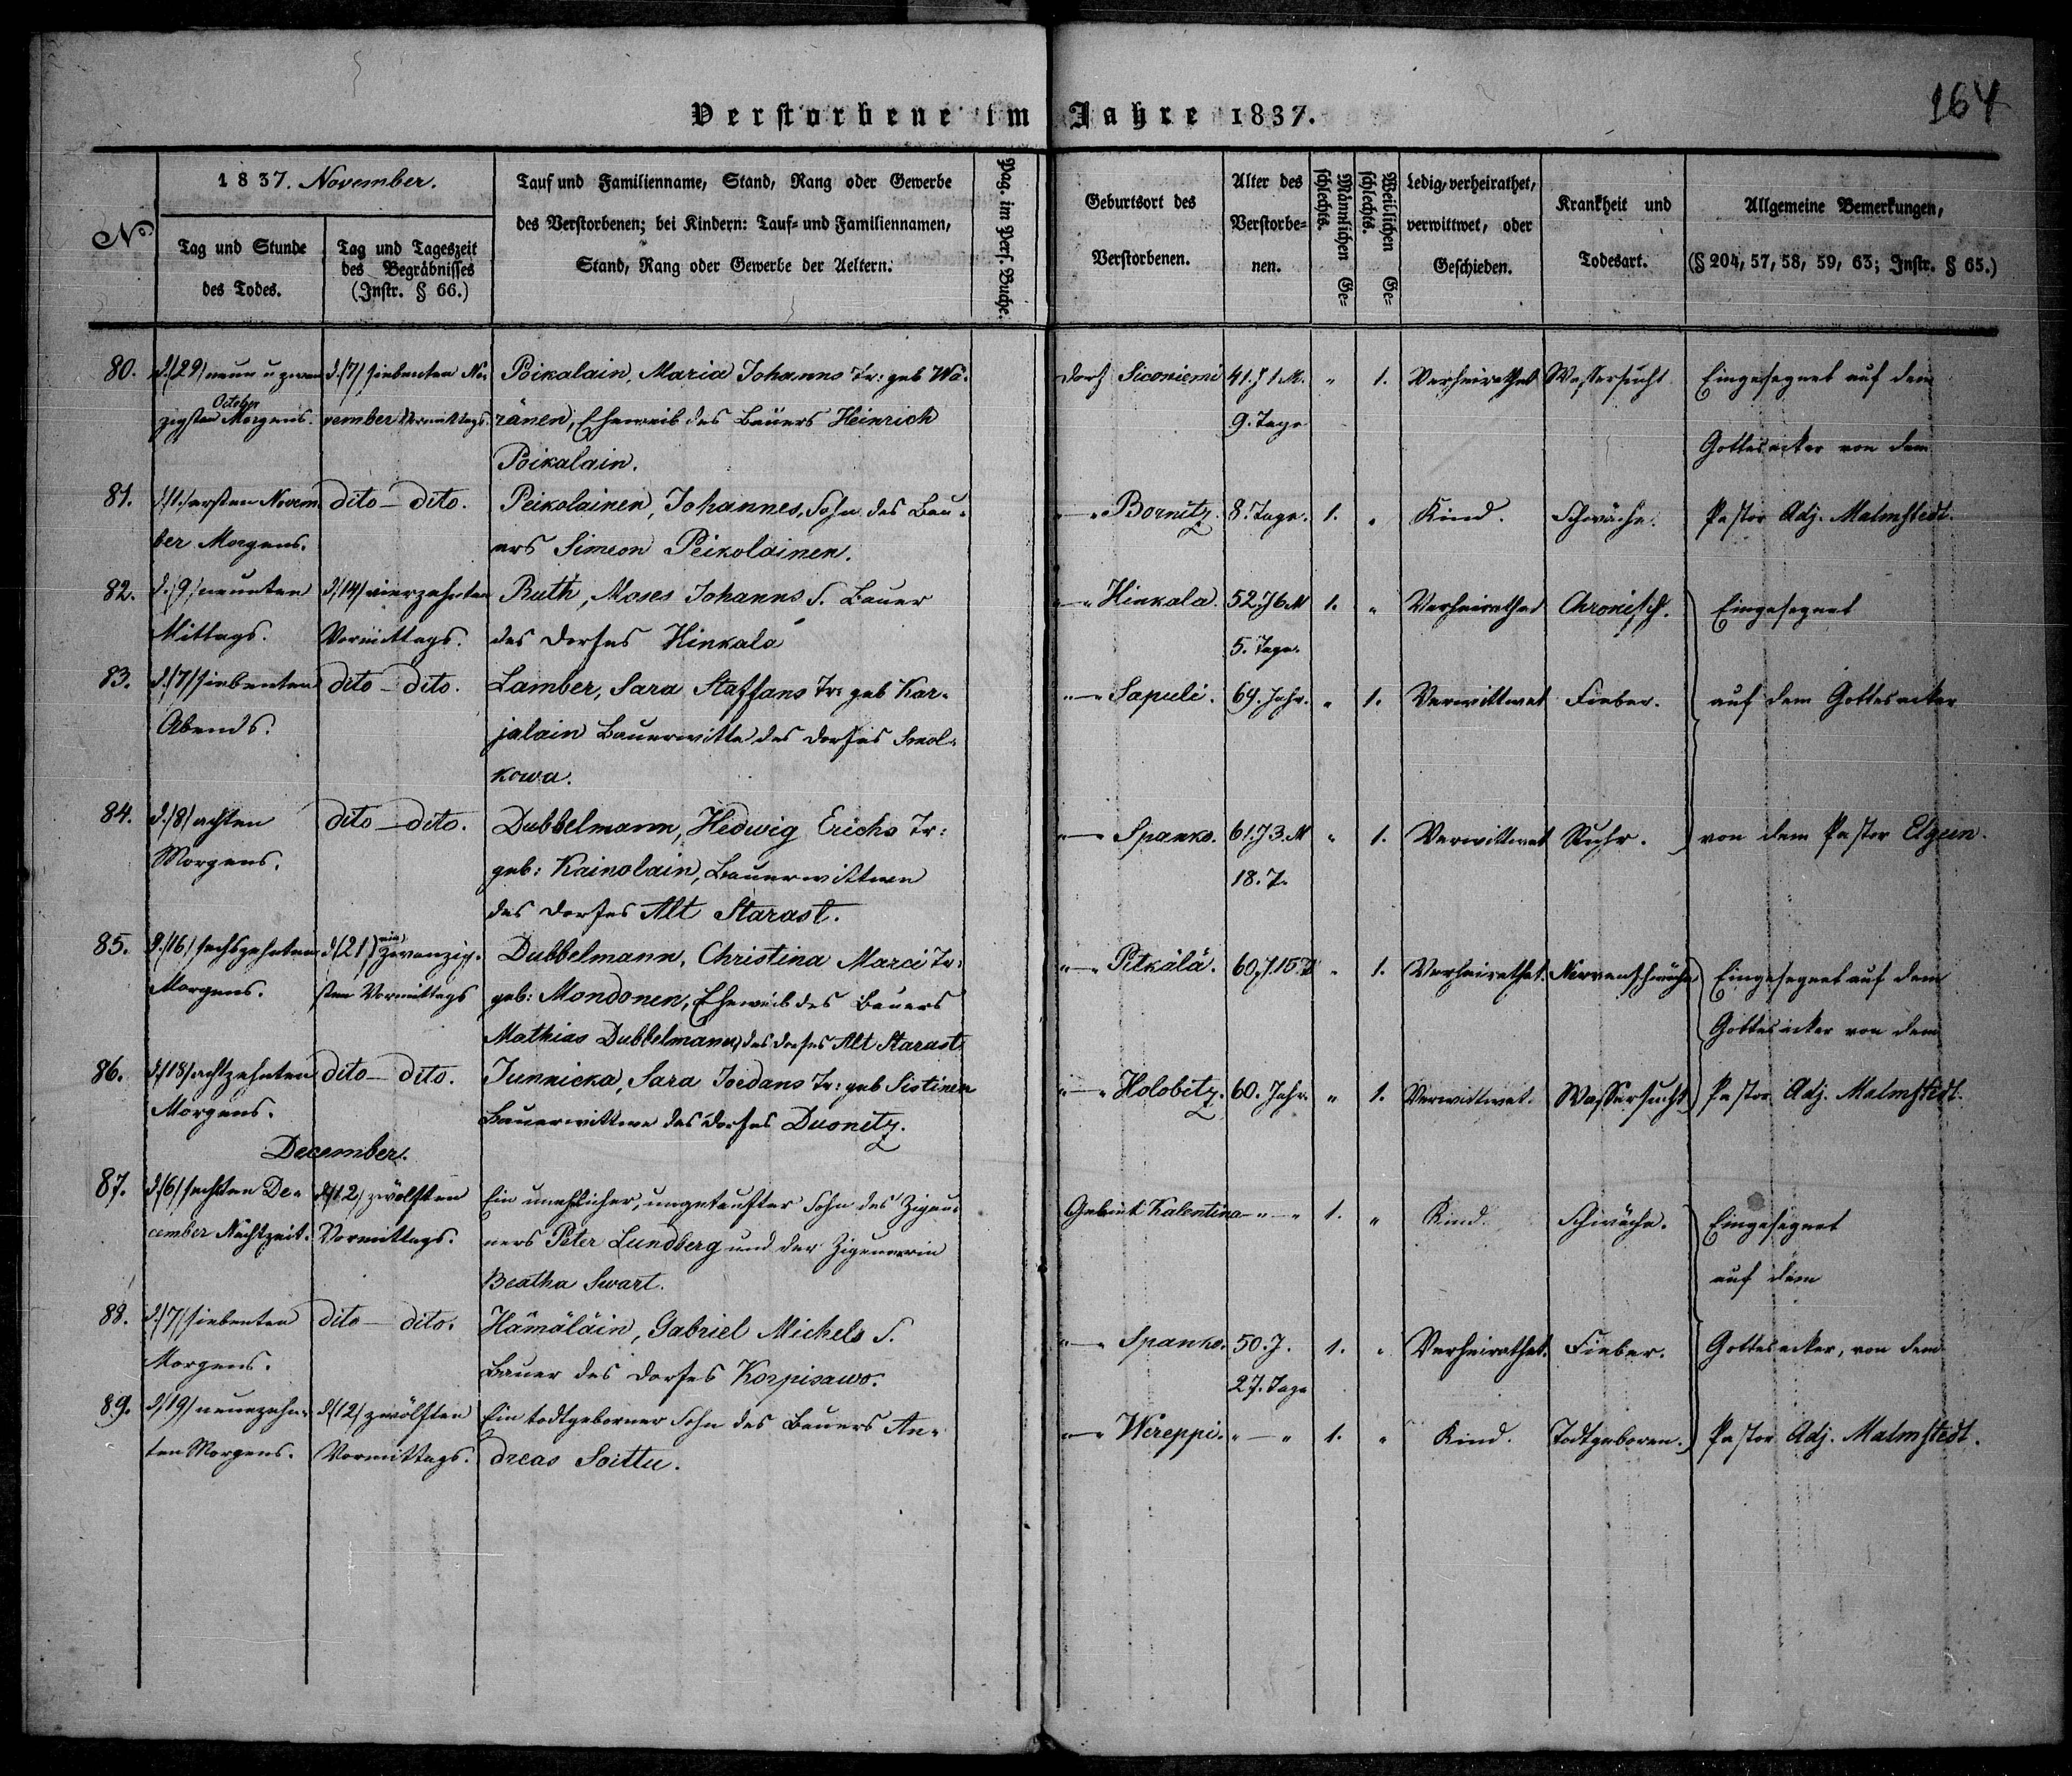 164
Verstorbene im Jahre 1837.
No
1837. November.
Tag und Stunde
des Todes.
Tag und Tageszeit
des Begräbnisses
(Instr. § 66.)
Tauf und Familienname, Stand, Rang oder Gewerbe
des Verstorbenen; bei Kindern: Tauf- und Familiennamen,
Stand, Rang oder Gewerbe der Aeltern.
Pag. im Pers. Buche.
Geburtsort des
Verstorbenen.
Alter des
Verstorbe-
nen.
Männlichen Ge-
schlechts.
Weiblichen Ge-
schlechts.
Ledig, verheirathet,
verwittwet, oder
Geschieden.
Krankheit und
Todesart.
Allgemeine Bemerkungen,
(§ 204, 57, 58, 59, 63; Instr. § 65.)
80. d. (29) neun u zwan d. (7) siebenten No- Poikalain, Maria Johanns Tr: geb Wä- Dorf Siconiemi 41. J 1 M. " 1. Verheirathet Wassersucht Eingesegnet auf dem
October
zigsten Morgens. vember Vormittags. ränen, Eheweib des Bauers Heinrich 9. Tage
Poikalain. Gottesacker von dem
81. d. (1) ersten Novem dito - dito. Peikolainen, Johannes, Sohn des Bau- "—" Bornitz. 8. Tage. 1. " Kind. Schwäche. Pastor Adj. Malmstedt.
ber Morgens. ers Simeon Peikolainen.
82. d. (9) neunten d. (14) vierzehnten Ruth, Moses Johanns S. Bauer "—" Hinkala. 52 J 6 M 1. " Verheirathet Chronisch. Eingesegnet
Mittags. Vormittags. des Dorfes Hinkala 5. Tage.
83. d. (7) siebenten dito - dito. Lamber, Sara Staffans Tr: geb Kar- "—" Sapuli. 64. Jahr. " 1. Verwittwet Fieber. auf dem Gottesacker
Abends. jalain Bauerwitte des Dorfes Smol-
kowa.
84. d. (8) achten dito - dito. Dubbelmann, Hedwig Erichs Tr: "—" Spanko. 61. J 3. M " 1. Verwittwet Ruhr. von dem Pastor Elgeen.
Morgens. geb: Kainolain, Bauerwittwe 18. T.
des Dorfes Alt Starast.
85. d. (16) sechszehnten d. (21) ein zwanzig- Dubbelmann, Christina Marci Tr: "—" Pitkälä. 60. J. 15. T " 1. Verheirathet. Nervenschwäche Eingesegnet auf dem
Morgens. sten Vormittags geb: Mondonen, Eheweib des Bauers
Mathias Dubbelmann, des Dorfes Alt Starast Gottesacker von dem
86. d. (18) achtzehnten dito - dito. Junnicka, Sara Jordans Tr: geb Sistinen "—" Holobitz. 60. Jahr. " 1. Verwittwet. Wassersucht Pastor Adj. Malmstedt.
Morgens. Bauerwittwe des Dorfes Duonitz.
December.
87. d. (6) sechsten De- d. (12) zwölften Ein unehlicher, ungetaufter Sohn des Zigeu- Gebiet Kalentina "—" 1. " Kind. Schwäche. Eingesegnet
cember Nachtzeit. Vormittags. ners Peter Lundberg und der Zigeunerin
Beatha Swart. auf dem
88. d. (7) siebenten dito - dito. Hämäläin, Gabriel Michels S. "—" Spanko. 50. J. 1. " Verheirathet. Fieber. Gottesacker, von dem
Morgens. Bauer des Dorfes Korpisawo. 27. Tage
89. d. (19) neunzehn- d. (12) zwölften Ein todtgeborner Sohn des Bauers An- "—" Wereppi. "—" 1. " Kind. Todtgeboren. Pastor Adj. Malmstedt.
ten Morgens. Vormittags. dreas Soittu.